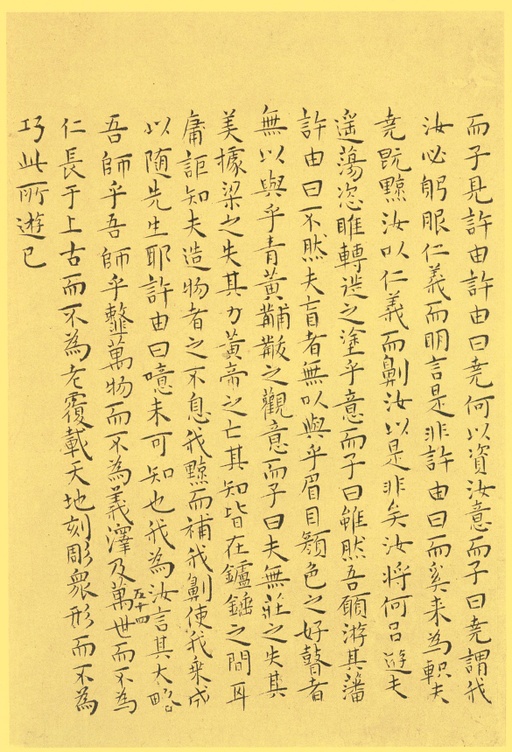 而子見許由許由曰堯何以資汝意而子曰堯謂我
汝必躬服仁義而明言是非許由曰而奚来為軹夫
堯既黥汝以仁義而劓汝以是非矣汝将何以遊夫
遥蕩恣睢轉徙之塗乎意而子曰雖然吾願游其藩
許由曰不然夫盲者無以與乎眉目顏色之好瞽者
無以與乎青黃黼黻之觀意而子曰夫無莊之失其
美據梁之失其力黃帝之亡其知皆在鑪錘之間耳
庸詎知夫造物者之不息我黥而補我劓使我乘成
以随先生耶許由曰噫未可知也我為汝言其大略
吾師乎吾師乎韲萬物而不為義澤及萬世而不為
五十四
仁長于上古而不為老覆載天地刻彫衆形而不為
巧此所遊已